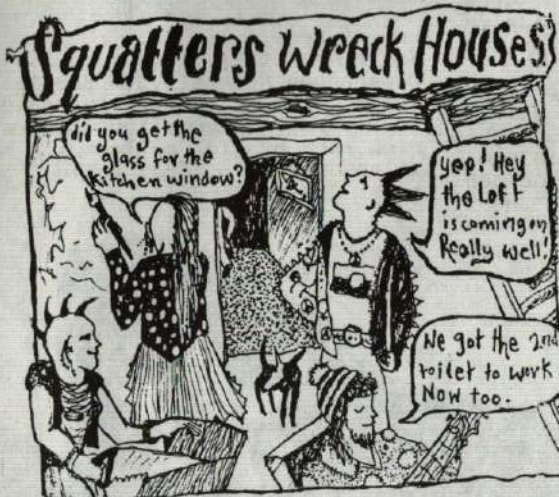 Squatters Wreck Houses!
did you get the
glass for the
kitchen window?
yep! Hey
the Loft
is coming on
Really well!
We got the 2nd
toilet to work
Now too.